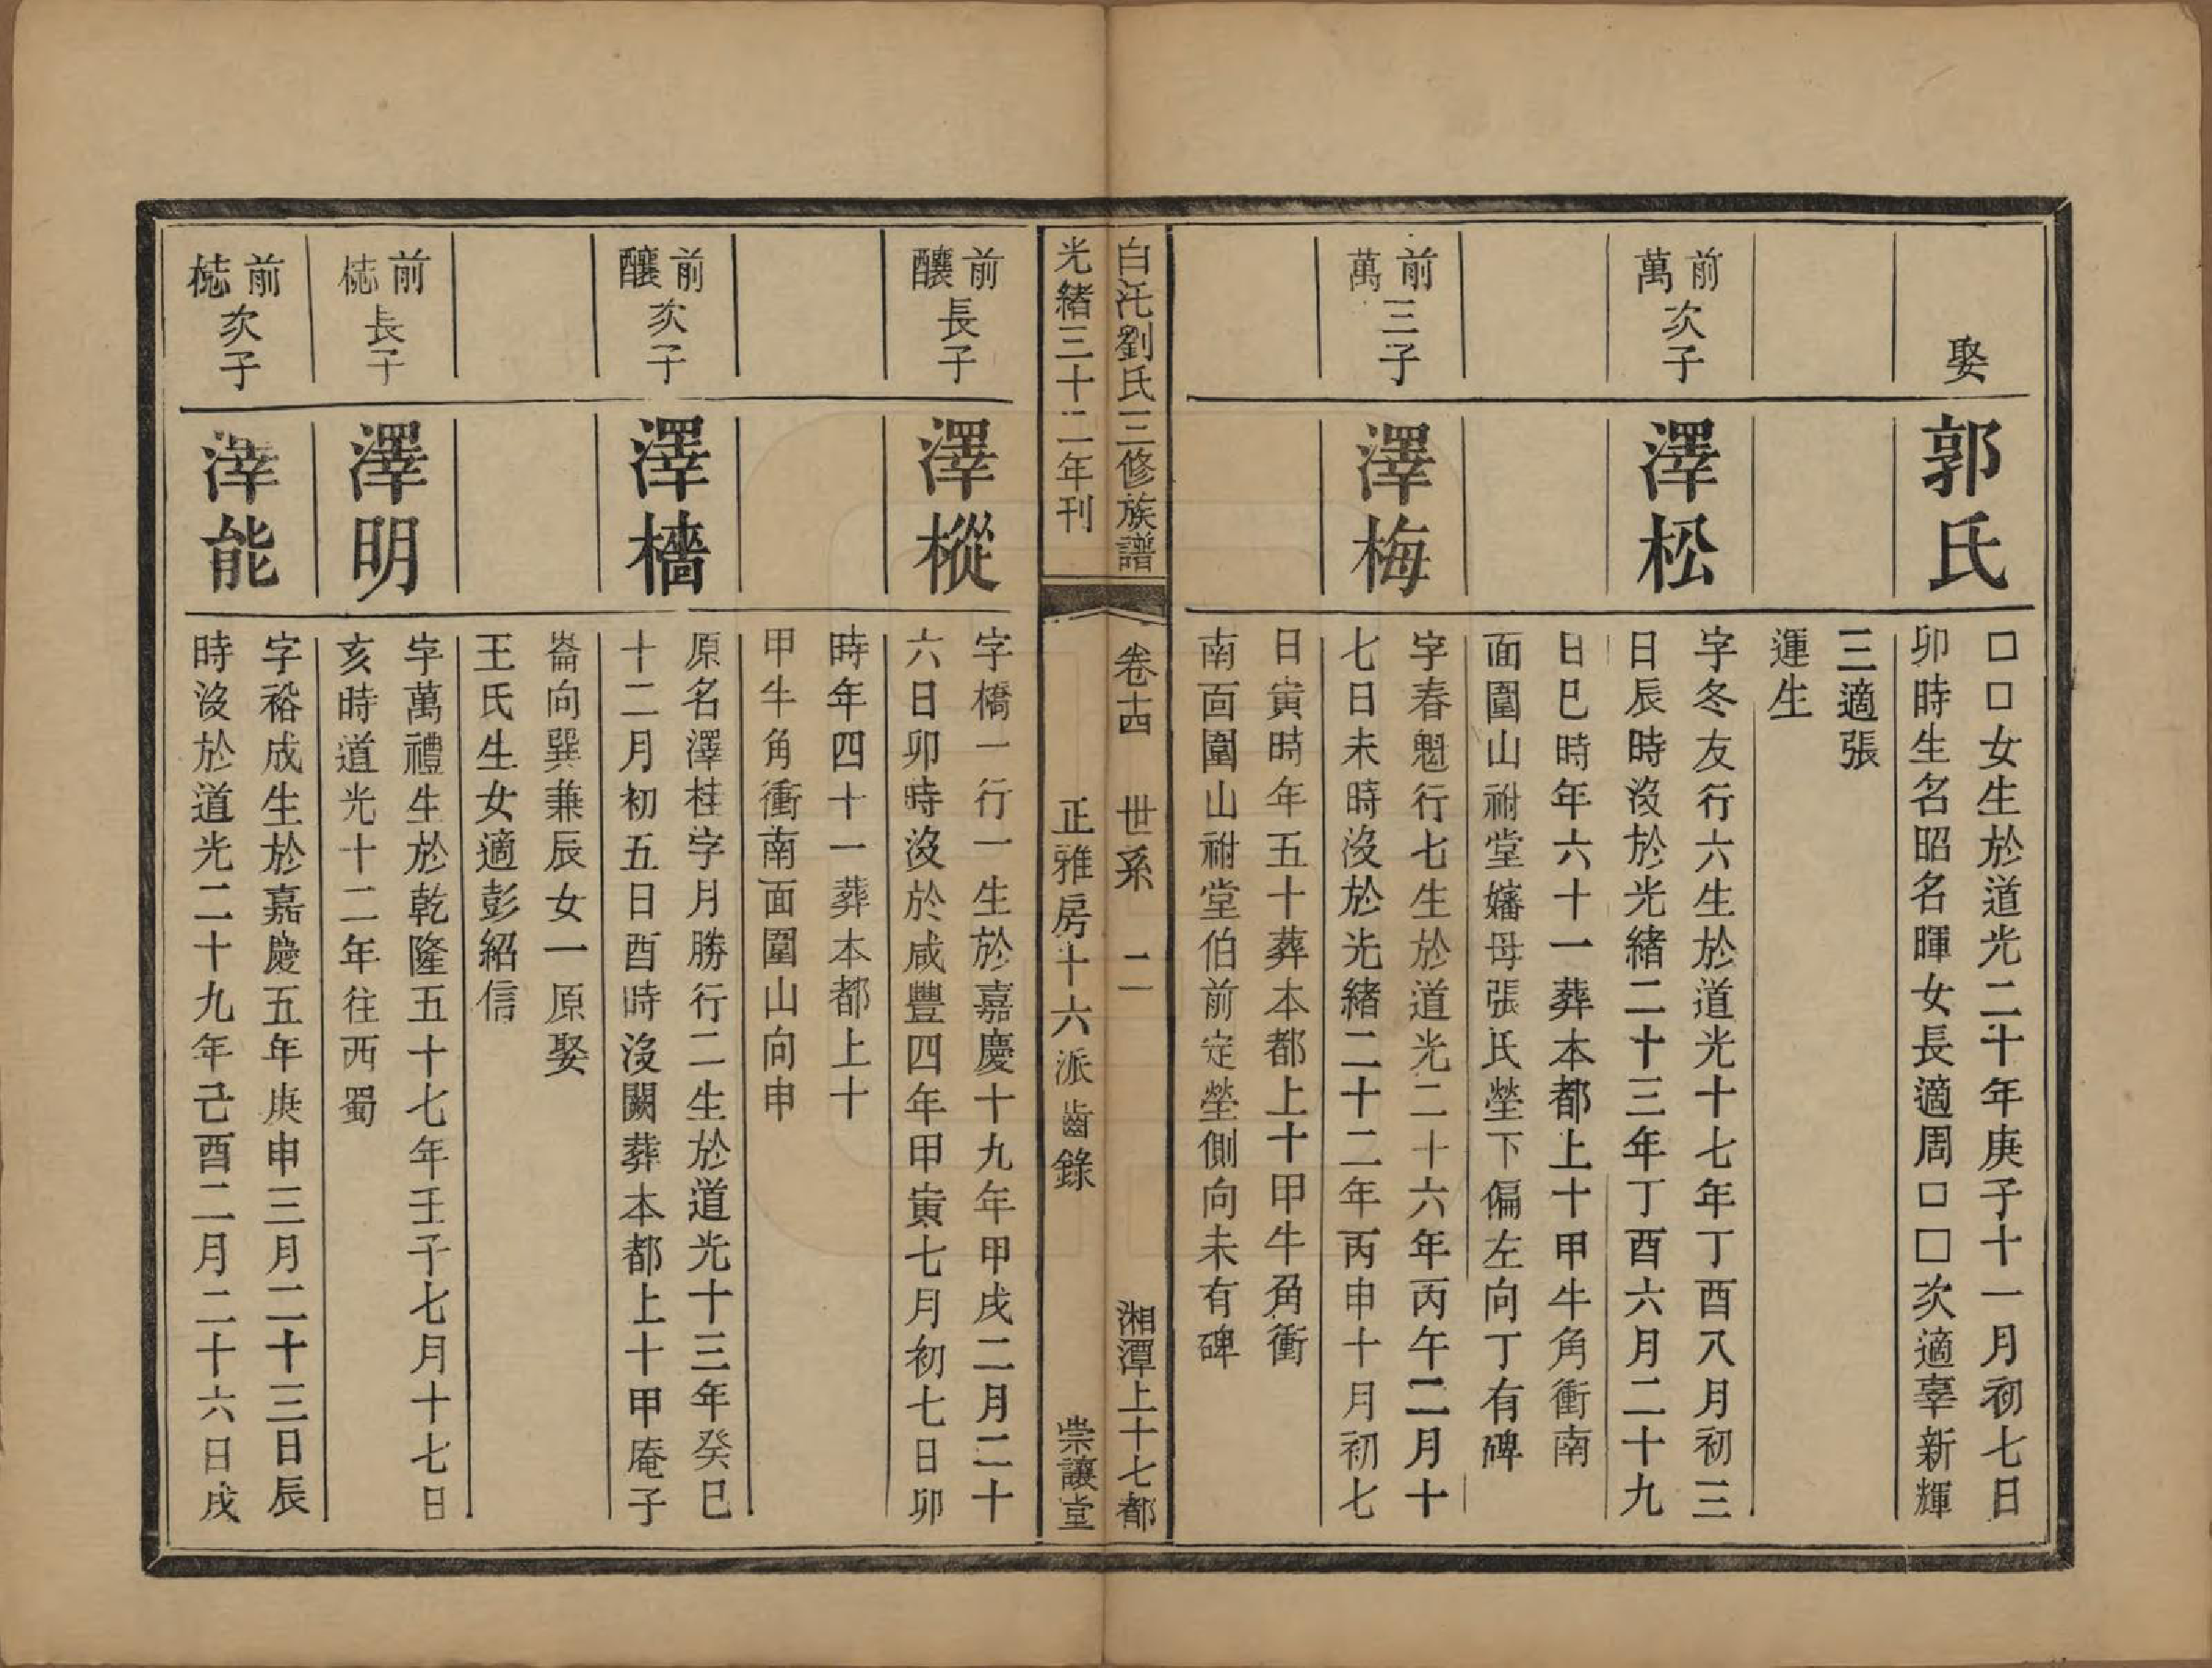 娶
郭氏
□□女生於道光二十年庚子十一月初七日
卯時生名昭名暉女長適周□□次適辜新輝
三適張
運生
前萬次子
澤松
字冬友行六生於道光十七年丁酉八月初三
日辰時沒於光緒二十三年丁酉六月二十九
日巳時年六十一葬本都上十甲牛角衝南
面圍山祔堂嬸母張氏塋下偏左向丁有碑
前萬三子
澤梅
字春魁行七生於道光二十六年丙午二月十
七日未時沒於光緒二十二年丙申十月初七
日寅時年五十葬本都上十甲牛角衝
南面圍山祔堂伯前定塋側向未有碑
白汑劉氏三修族譜
卷十四 世系 二
湘潭上十七都
光緒三十二年刊
正雅房十六派齒錄
崇讓堂
前釀長子
澤樅
字橋一行一生於嘉慶十九年甲戌二月二十
六日卯時沒於咸豐四年甲寅七月初七日卯
時年四十一葬本都上十
甲牛角衝南面圍山向申
前釀次子
澤檣
原名澤桂字月勝行二生於道光十三年癸巳
十二月初五日酉時沒闕葬本都上十甲庵子
崙向巽兼辰女一原娶
王氏生女適彭紹信
前梽長子
澤明
字萬禮生於乾隆五十七年壬子七月十七日
亥時道光十二年往西蜀
前梽次子
澤能
字裕成生於嘉慶五年庚申三月二十三日辰
時沒於道光二十九年己酉二月二十六日戌